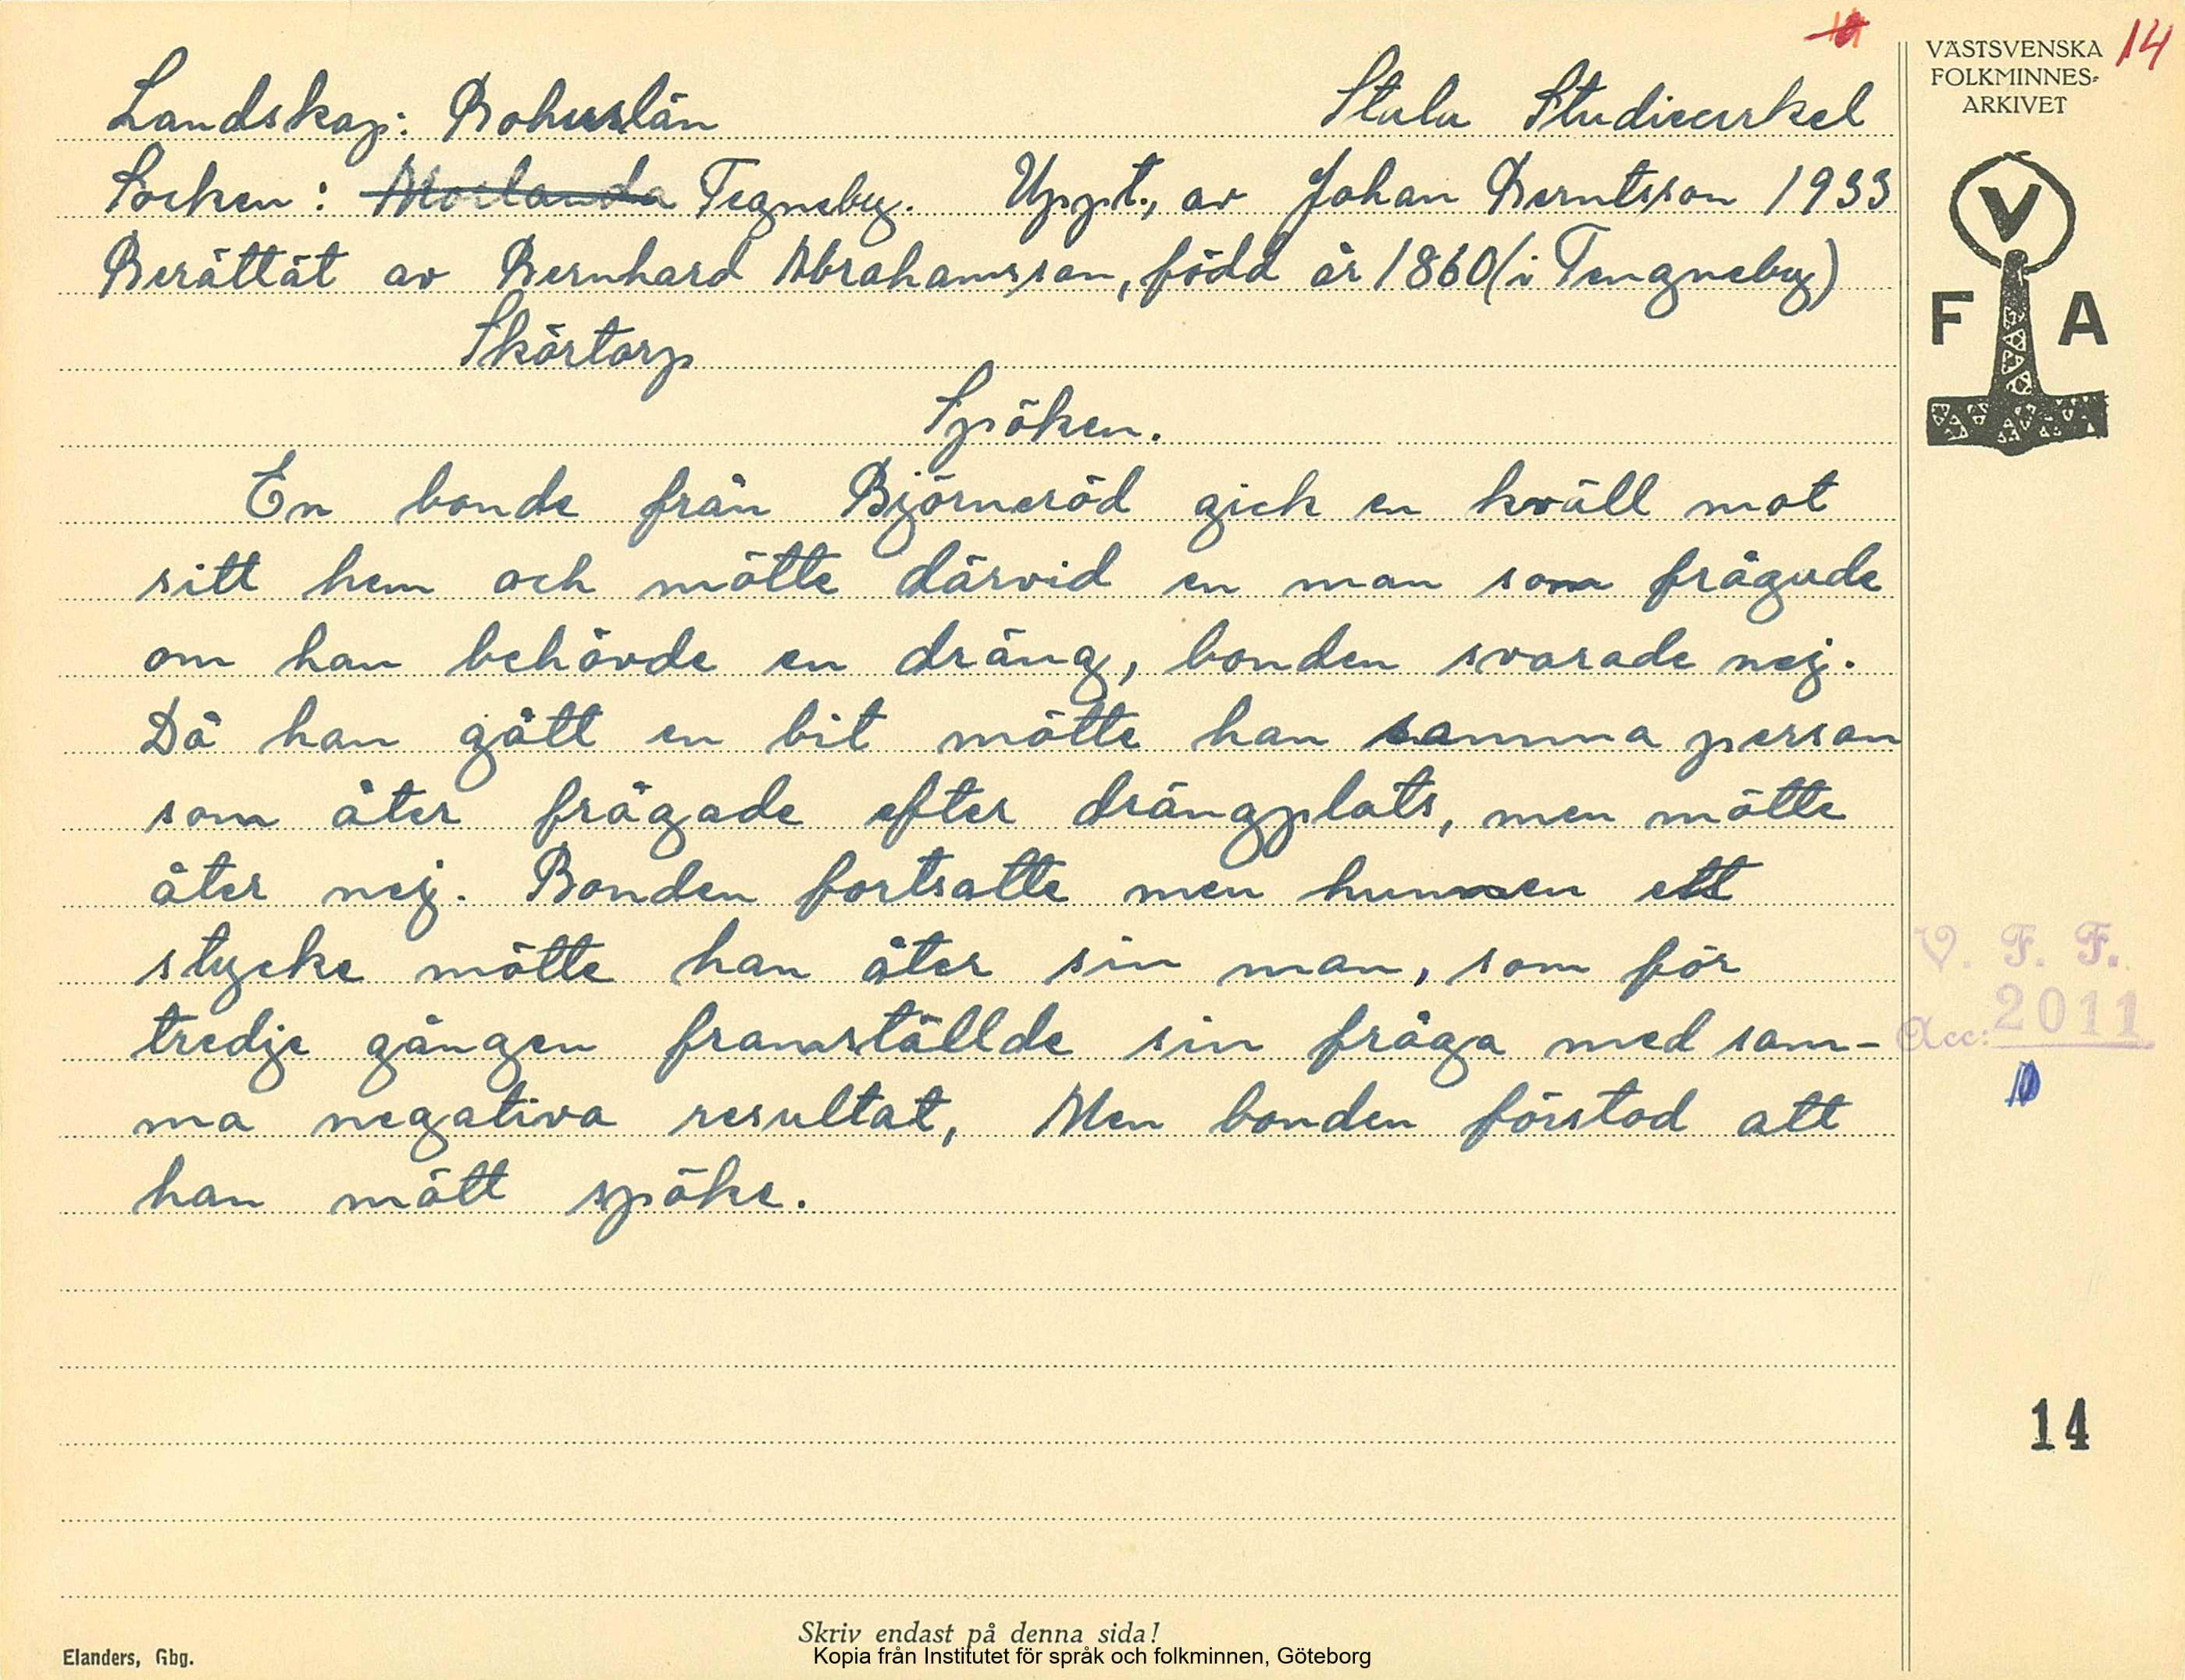 14
VÄSTSVENSKA
FOLKMINNES-
ARKIVET
V
F A
Landskap: Bohuslän Stala Studiecirkel
Socken: Morlanda Tegneby. Uppt., av Johan Berntsson 1933
Berättat av Bernhard Abrahamsson, född år 1860 (i Tengneby)
Skörtorp
Spöken.
En bonde från Björneröd gick en kväll mot
sitt hem och mötte därvid en man som frågade
om han behövde en dräng, bonden svarade nej.
Då han gått en bit mötte han samma person
som åter frågade efter drängplats, men mötte
åter nej. Bonden fortsatte men hunnen ett
stycke mötte han åter sin man, som för
tredje gången framställde sin fråga med sam-
ma negativa resultat, Men bonden förstod att
han mött spöke.
V. F. F.
Acc: 2011
14
Skriv endast på denna sida!
Elanders, Gbg.
Kopia från Institutet för språk och folkminnen, Göteborg